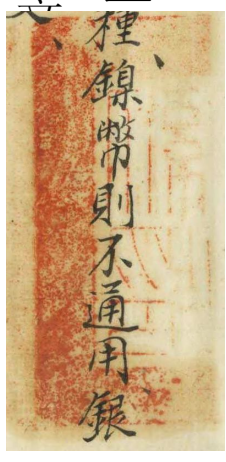 種、鎳幣則不通用銀